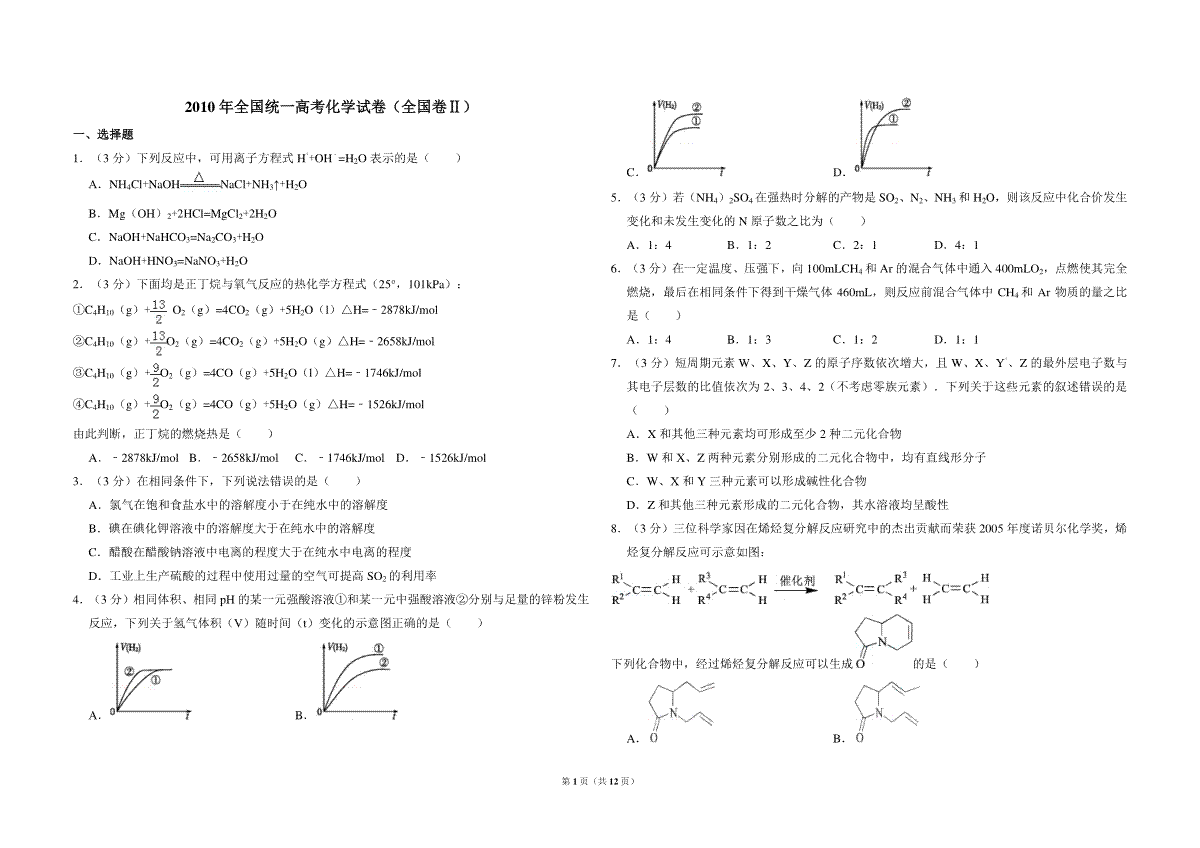 2010 年全国统一高考化学试卷（全国卷Ⅱ）
一、选择题
1．（3 分）下列反应中，可用离子方程式 H⁺+OH⁻=H₂O 表示的是（　　）
A．NH₄Cl+NaOH=△=NaCl+NH₃↑+H₂O
B．Mg（OH）₂+2HCl=MgCl₂+2H₂O
C．NaOH+NaHCO₃=Na₂CO₃+H₂O
D．NaOH+HNO₃=NaNO₃+H₂O
2．（3 分）下面均是正丁烷与氧气反应的热化学方程式（25°，101kPa）：
①C₄H₁₀（g）+13/2 O₂（g）=4CO₂（g）+5H₂O（l）△H=﹣2878kJ/mol
②C₄H₁₀（g）+13/2 O₂（g）=4CO₂（g）+5H₂O（g）△H=﹣2658kJ/mol
③C₄H₁₀（g）+9/2 O₂（g）=4CO（g）+5H₂O（l）△H=﹣1746kJ/mol
④C₄H₁₀（g）+9/2 O₂（g）=4CO（g）+5H₂O（g）△H=﹣1526kJ/mol
由此判断，正丁烷的燃烧热是（　　）
A．﹣2878kJ/mol B．﹣2658kJ/mol C．﹣1746kJ/mol D．﹣1526kJ/mol
3．（3 分）在相同条件下，下列说法错误的是（　　）
A．氯气在饱和食盐水中的溶解度小于在纯水中的溶解度
B．碘在碘化钾溶液中的溶解度大于在纯水中的溶解度
C．醋酸在醋酸钠溶液中电离的程度大于在纯水中电离的程度
D．工业上生产硫酸的过程中使用过量的空气可提高 SO₂ 的利用率
4．（3 分）相同体积、相同 pH 的某一元强酸溶液①和某一元中强酸溶液②分别与足量的锌粉发生
反应，下列关于氢气体积（V）随时间（t）变化的示意图正确的是（　　）
A．V(H₂) ② ① 0 t B．V(H₂) ① ② 0 t
C．V(H₂) ② ① 0 t D．V(H₂) ② ① 0 t
5．（3 分）若（NH₄）₂SO₄ 在强热时分解的产物是 SO₂、N₂、NH₃ 和 H₂O，则该反应中化合价发生
变化和未发生变化的 N 原子数之比为（　　）
A．1：4 B．1：2 C．2：1 D．4：1
6．（3 分）在一定温度、压强下，向 100mLCH₄ 和 Ar 的混合气体中通入 400mLO₂，点燃使其完全
燃烧，最后在相同条件下得到干燥气体 460mL，则反应前混合气体中 CH₄ 和 Ar 物质的量之比
是（　　）
A．1：4 B．1：3 C．1：2 D．1：1
7．（3 分）短周期元素 W、X、Y、Z 的原子序数依次增大，且 W、X、Y⁺、Z 的最外层电子数与
其电子层数的比值依次为 2、3、4、2（不考虑零族元素）．下列关于这些元素的叙述错误的是
（　　）
A．X 和其他三种元素均可形成至少 2 种二元化合物
B．W 和 X、Z 两种元素分别形成的二元化合物中，均有直线形分子
C．W、X 和 Y 三种元素可以形成碱性化合物
D．Z 和其他三种元素形成的二元化合物，其水溶液均呈酸性
8．（3 分）三位科学家因在烯烃复分解反应研究中的杰出贡献而荣获 2005 年度诺贝尔化学奖，烯
烃复分解反应可示意如图：
R¹ R² C=C H H + R³ R⁴ C=C H H 催化剂 R¹ R² C=C R³ R⁴ + H H C=C H H
下列化合物中，经过烯烃复分解反应可以生成 N O 的是（　　）
A．N O B．N O
第 1 页（共 12 页）